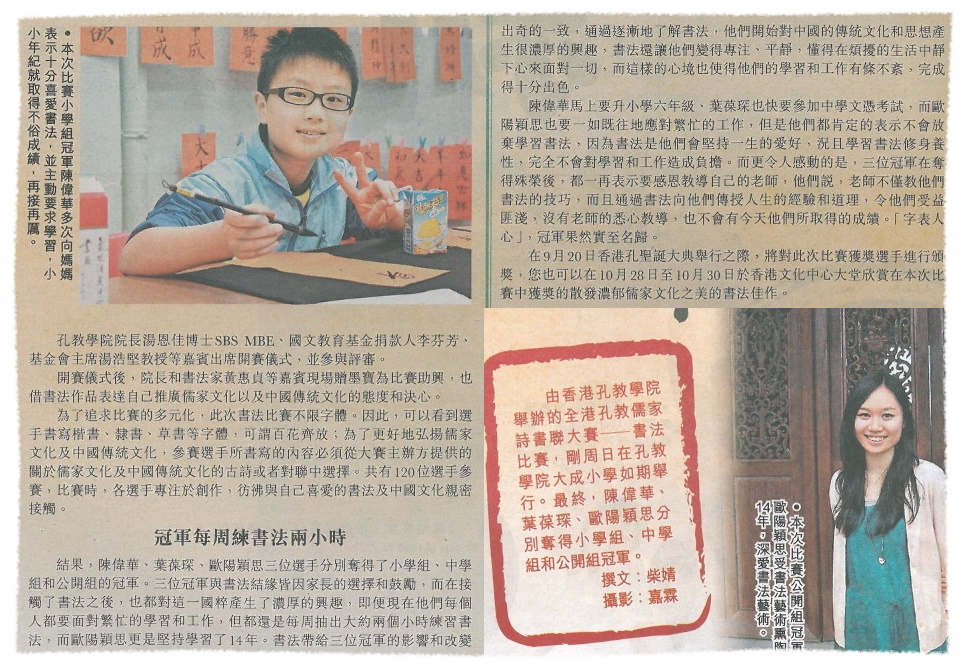 •本次比賽小學組冠軍陳偉華多次向媽媽
表示十分喜愛書法，並主動要求學習，小
小年紀就取得不俗成績，再接再厲。
孔教學院院長湯恩佳博士SBS MBE、國文教育基金捐款人李芬芳、
基金會主席湯浩堅教授等嘉賓出席開賽儀式，並參與評審。
開賽儀式後，院長和書法家黃惠貞等嘉賓現場贈墨寶為比賽助興，也
借書法作品表達自己推廣儒家文化以及中國傳統文化的態度和決心。
為了追求比賽的多元化，此次書法比賽不限字體。因此，可以看到選
手書寫楷書、隸書、草書等字體，可謂百花齊放；為了更好地弘揚儒家
文化及中國傳統文化，參賽選手所書寫的內容必須從大賽主辦方提供的
關於儒家文化及中國傳統文化的古詩或者對聯中選擇。共有120位選手參
賽，比賽時，各選手專注於創作，彷彿與自己喜愛的書法及中國文化親密
接觸。
冠軍每周練書法兩小時
結果，陳偉華、葉葆琛、歐陽穎思三位選手分別奪得了小學組、中學
組和公開組的冠軍。三位冠軍與書法結緣皆因家長的選擇和鼓勵，而在接
觸了書法之後，也都對這一國粹產生了濃厚的興趣，即便現在他們每個
人都要面對繁忙的學習和工作，但都還是每周抽出大約兩個小時練習書
法，而歐陽穎思更是堅持學習了14年。書法帶給三位冠軍的影響和改變
出奇的一致，通過逐漸地了解書法，他們開始對中國的傳統文化和思想產
生很濃厚的興趣，書法還讓他們變得專注、平靜，懂得在煩擾的生活中靜
下心來面對一切，而這樣的心境也使得他們的學習和工作有條不紊，完成
得十分出色。
陳偉華馬上要升小學六年級、葉葆琛也快要參加中學文憑考試，而歐
陽穎思也要一如既往地應對繁忙的工作，但是他們都肯定的表示不會放
棄學習書法，因為書法是他們會堅持一生的愛好，況且學習書法修身養
性，完全不會對學習和工作造成負擔。而更令人感動的是，三位冠軍在奪
得殊榮後，都一再表示要感恩教導自己的老師，他們說，老師不僅教他們
書法的技巧，而且通過書法向他們傳授人生的經驗和道理，令他們受益
匪淺，沒有老師的悉心教導，也不會有今天他們所取得的成績。「字表人
心」，冠軍果然實至名歸。
在9月20日香港孔聖誕大典舉行之際，將對此次比賽獲獎選手進行頒
獎，您也可以在10月28日至10月30日於香港文化中心大堂欣賞在本次比
賽中獲獎的散發濃郁儒家文化之美的書法佳作。
由香港孔教學院
舉辦的全港孔教儒家
詩書聯大賽——書法
比賽，剛周日在孔教
學院大成小學如期舉
行。最終，陳偉華、
葉葆琛、歐陽穎思分
別奪得小學組、中學
組和公開組冠軍。
撰文：柴婧
攝影：嘉霖
•本次比賽公開組冠軍
歐陽穎思受書法藝術熏陶
14年，深愛書法藝術。